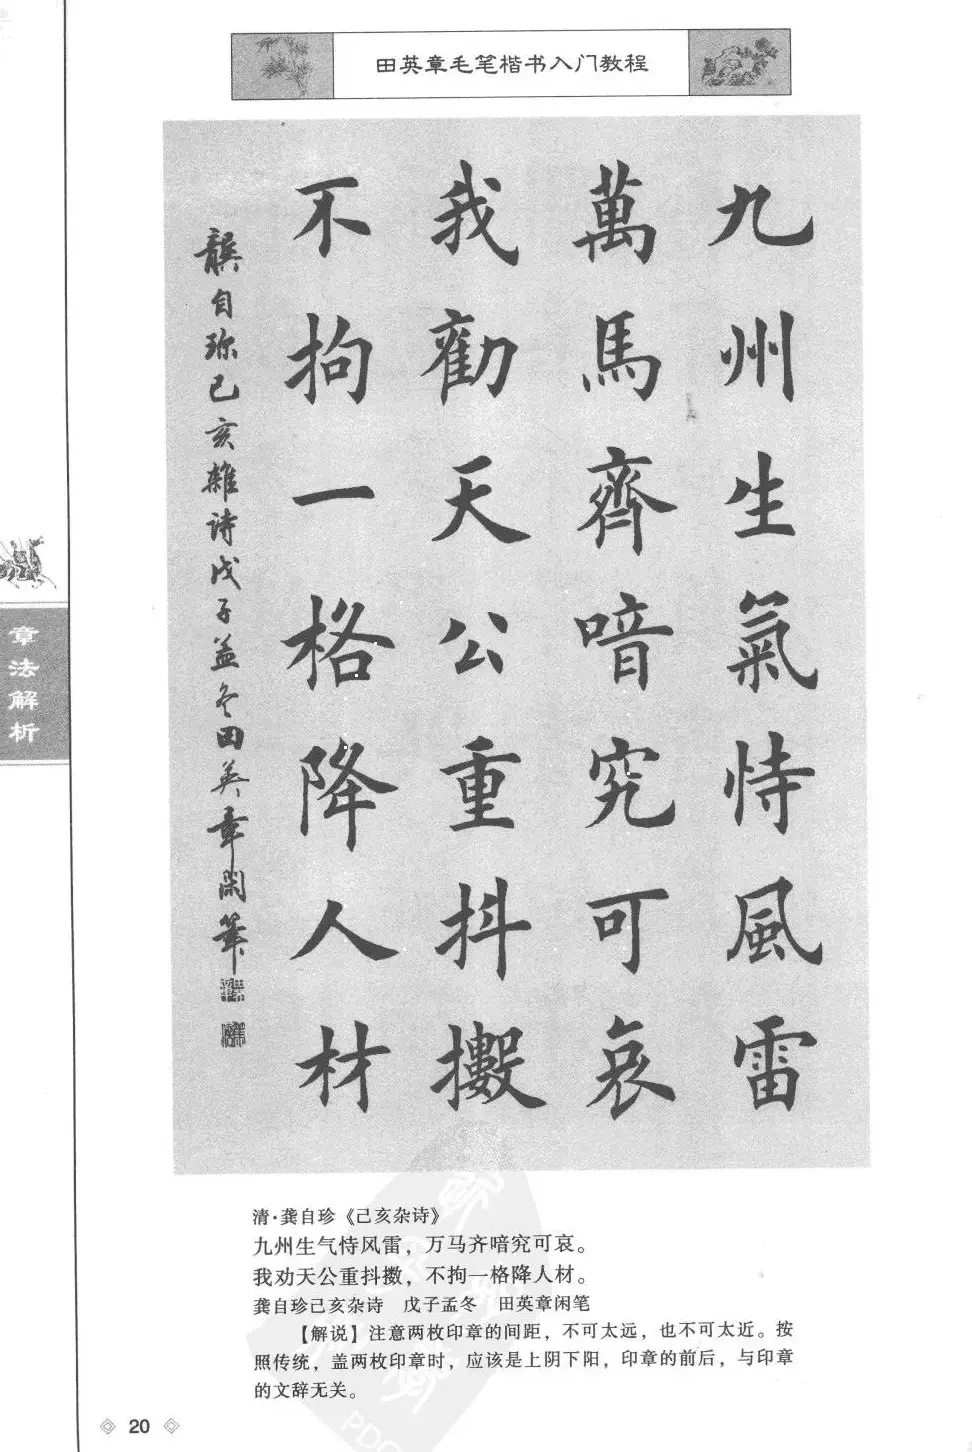 田英章毛笔楷书入门教程
九州生氣恃風雷
萬馬齊喑究可哀
我勸天公重抖擻
不拘一格降人材
龔自珍己亥雜诗戊子孟冬田英章閑筆
章法解析
清·龚自珍《己亥杂诗》
九州生气恃风雷，万马齐喑究可哀。
我劝天公重抖擞，不拘一格降人材。
龚自珍己亥杂诗 戊子孟冬 田英章闲笔
【解说】注意两枚印章的间距，不可太远，也不可太近。按
照传统，盖两枚印章时，应该是上阴下阳，印章的前后，与印章
的文辞无关。
20